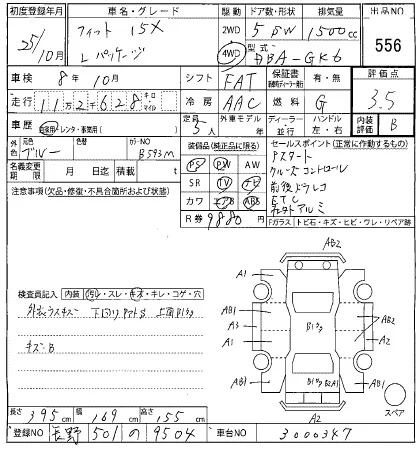 初度登録年月 車名・グレード 駆動 ドア数・形状 排気量 出品NO
25/10月 フィット 15X Lパッケージ 2WD 4WD 5DW 1500cc 556
型式 DBA-GK6
車検 8年10月 シフト FAT 保証書 評価点 3.5
走行 11万2千628キロ マイル 冷房 AAC 燃料 G 内装評価 B
車歴 自家用・レンタ・事業用( ) 定員 5人 外車モデル 年 ディーラー 並行 ハンドル 左・右
外色 元色 ブルー 色替 カラーNO B593M
装備品(純正品に限る) セールスポイント(正常に作動するもの)
PS PW AW Pスタート
名義変更期限 月 日迄 積載 t SR TV ナビ クルーズコントロール
注意事項(欠品・修復・不具合箇所および状態) カワ エアB ABS 前後ドラレコ
R券 9880円 ETC
社外アルミ
Fガラス トビ石・キズ・ヒビ・ワレ・リペア跡
検査員記入 内装 汚レ・スレ・キズ・キレ・コゲ・穴
キズB
AB2
A1 A1
AB1 Bｼﾜ AB1
A3 AB2
A1 A2
AB1 Bｼﾜ B2A1 AB1
A2
スペア
長さ 395cm 幅 169cm 高さ 155cm
登録NO 長野 501 の 9504 車台NO 3000347